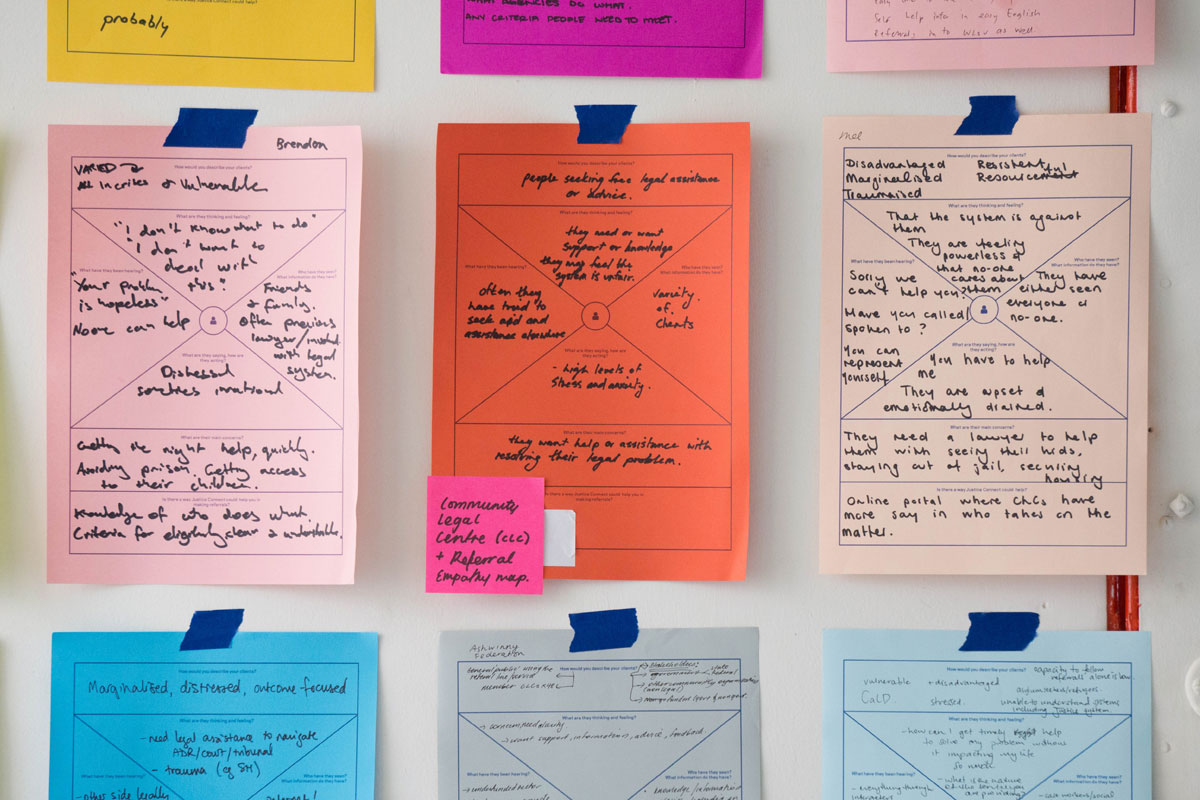 probably
WHAT AGENCIES DO WHAT.
ANY CRITERIA PEOPLE NEED TO MEET.
Self help info in easy English
Referrals in to WLSV as well
Brendon
How would you describe your clients?
VARIED
All In crises & Vulnerable
What are they thinking and feeling?
"I don't know what to do"
"I don't want to
deal with
this"
What have they been hearing?
"Your problem
is hopeless"
No one can help
Who have they seen?
What information do they have?
Friends
& family.
Often previous
lawyer/
with legal
system.
What are they saying, how are
they acting?
Distressed
sometimes irrational
What are their main concerns?
Getting the right help, quickly.
Avoiding prison. Getting access
to their children.
Is there a way Justice Connect could help you in
making referrals?
Knowledge of who does what
Criteria for eligibility clear & understandable.
How would you describe your clients?
people seeking free legal assistance
or advice.
What are they thinking and feeling?
they need or want
support or knowledge
they may feel the
system is unfair.
What have they been hearing?
often they
have tried to
seek aid and
assistance elsewhere
Who have they seen?
What information do they have?
variety
of
clients
What are they saying, how are
they acting?
- high levels of
stress and anxiety.
What are their main concerns?
they want help or assistance with
resolving their legal problem.
Is there a way Justice Connect could help you in
making referrals?
Community
Legal
Centre (CLC)
+ Referral
Empathy map.
Mel
How would you describe your clients?
Disadvantaged Resistent
Marginalised Resourceful
Traumatised
What are they thinking and feeling?
That the system is against
them
They are feeling
powerless &
that no-one
cares about
them
What have they been hearing?
Sorry we
can't help you?
Have you called/
spoken to?
You can
represent
yourself
Who have they seen?
What information do they have?
They have
either seen
everyone or
no-one.
What are they saying, how are
they acting?
You have to help
me
They are upset &
emotionally drained.
What are their main concerns?
They need a lawyer to help
them with seeing their kids,
staying out of jail, securing
housing
Is there a way Justice Connect could help you in
making referrals?
Online portal where CLCs have
more say in who takes on the
matter.
How would you describe your clients?
Marginalised, distressed, outcome focused
What are they thinking and feeling?
- need legal assistance to navigate
ADR/court/tribunal
- trauma (eg SM)
What have they been hearing?
Who have they seen?
What information do they have?
- other side legally
Ashwinny
Federation
How would you describe your clients?
general public using the
referral line/period
member CLCs
Stakeholders:
government
other community organisations
(non legal)
What are they thinking and feeling?
→ want support, information, advice, feedback
What have they been hearing?
Who have they seen?
What information do they have?
How would you describe your clients?
capacity to follow
referrals alone is low.
vulnerable + disadvantaged
CaLD stressed.
unable to understand systems
including justice system.
What are they thinking and feeling?
- how can I get timely help
to solve my problem without
it impacting my life
so much
What have they been hearing?
- everything through
Who have they seen?
What information do they have?
- what is the nature
of the service you
are providing?
- case workers/social